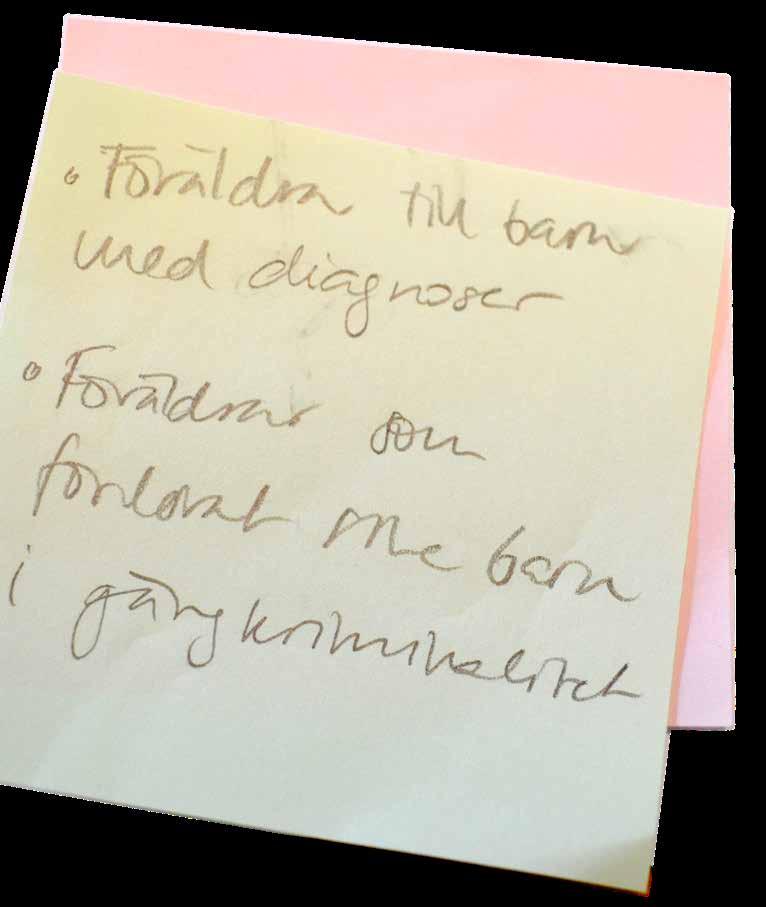 • Föräldrar till barn
med diagnoser
• Föräldrar som
förlorat sina barn
i gängkriminalitet